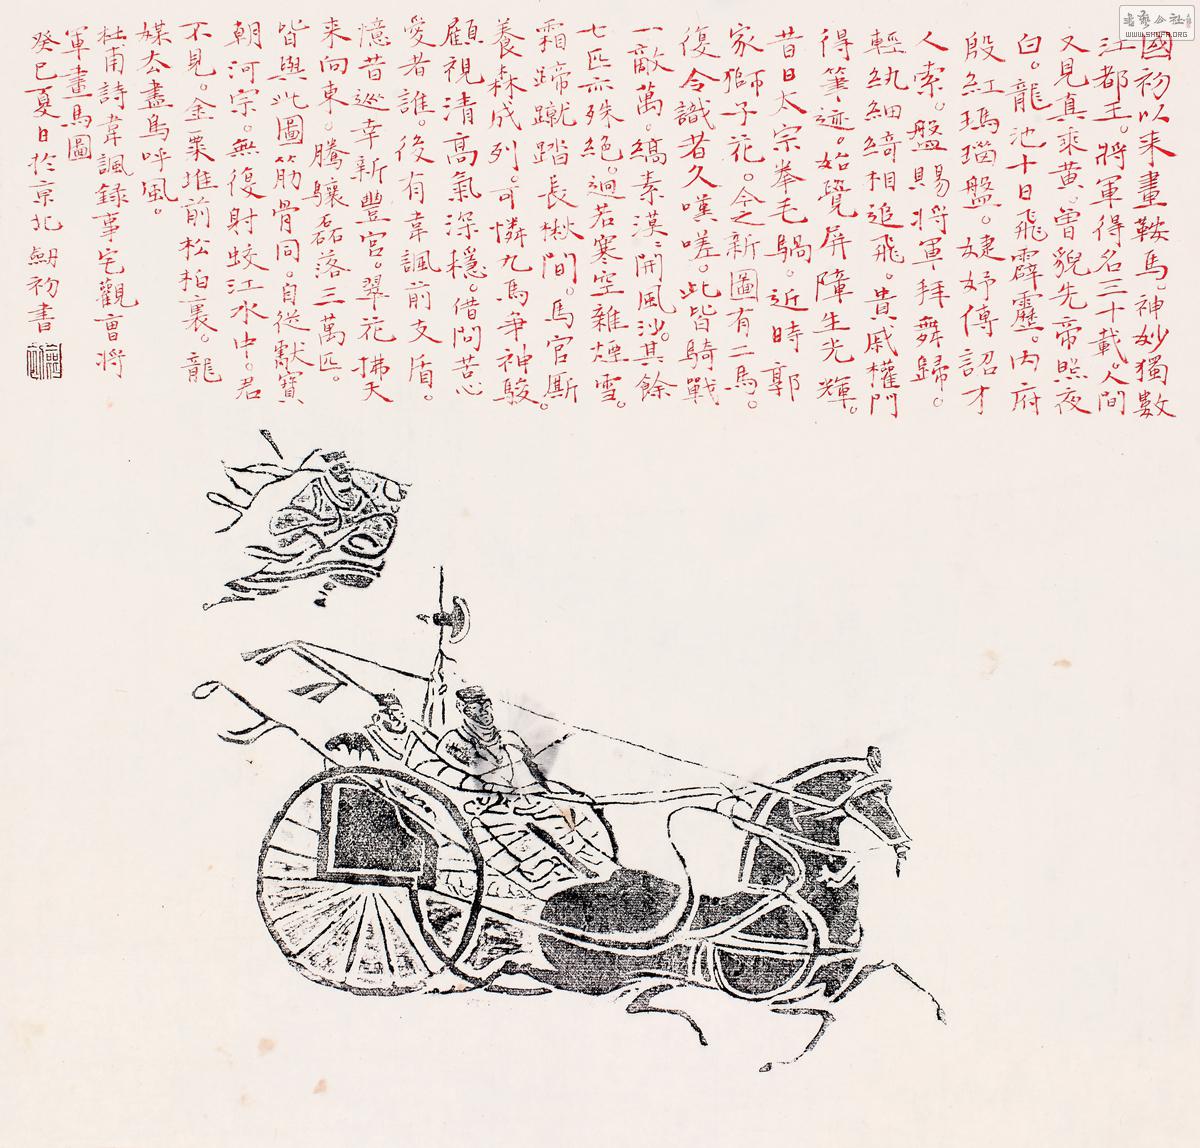 國初以来畫鞍馬。神妙獨數
江都王。將軍得名三十載。人間
又見真乘黃。曽貌先帝照夜
白。龍池十日飛霹靂。内府
殷紅瑪瑙盤。婕妤傳詔才
人索。盤賜將軍拜舞歸。
輕紈細綺相追飛。貴戚權門
得筆迹。始覺屏障生光輝。
昔日太宗拳毛騧。近時郭
家獅子花。今之新圖有二馬。
復令識者久嘆嗟。此皆騎戰
一敵萬。縞素漠〻開風沙。其餘
七匹亦殊絕。迥若寒空雜煙雪。
霜蹄蹴踏長楸間。馬官厮
養森成列。可憐九馬爭神駿。
顧視清高氣深穩。借問苦心
愛者誰。後有韋諷前支盾。
憶昔巡幸新豐宮。翠花拂天
来向東。騰驤磊落三萬匹。
皆與此圖筋骨同。自從獻寳
朝河宗。無復射蛟江水中。君
不見。金粟堆前松柏裏。龍
媒去盡鳥呼風。
杜甫詩韋諷録事宅觀曹將
軍畫馬圖
癸巳夏日於京北 劒初書
WWW.SHYFA.ORG